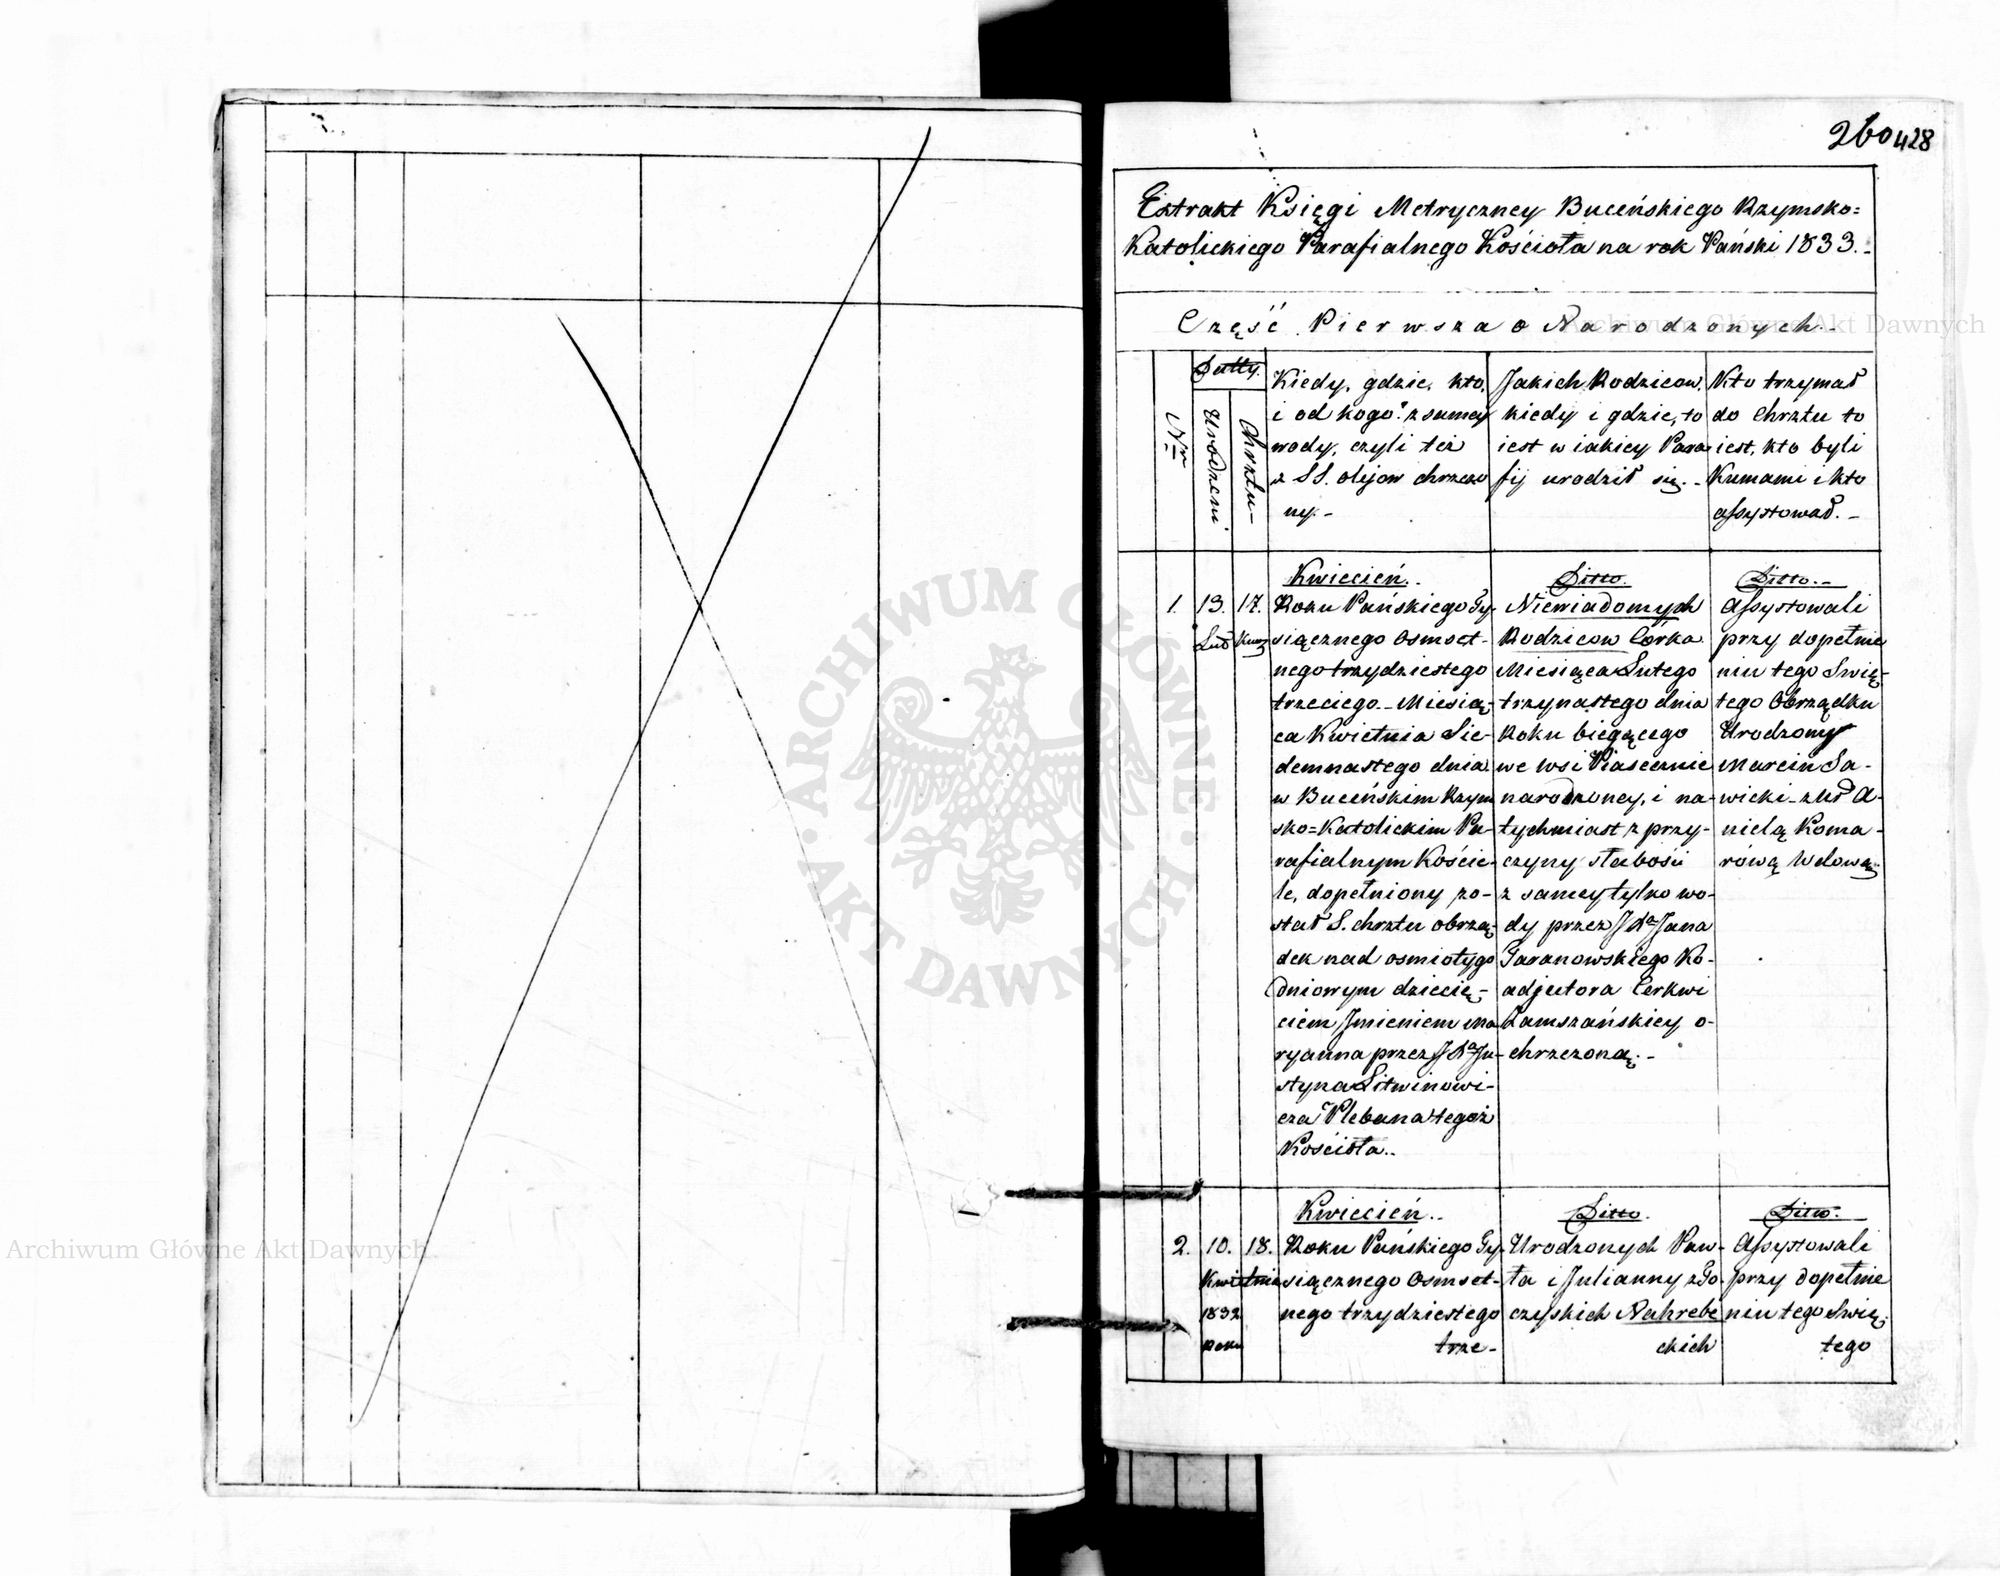 260 428
Extrakt Księgi Metryczney Buceńskiego Rzymsko=
Katolickiego Parafialnego Kościoła na rok Pański 1833.-
Część Pierwsza o Narodzonych.-
Nr
Datty.
Urodzeni
Chrztu-
Kiedy, gdzie, kto,
i od kogo? z samey
wody, czyli też
z SS. olijow chrzczo
ny.-
Jakich Rodzicow.
kiedy i gdzie, to
iest w iakiey Para
fij urodził się.-
Kto trzymał
do Chrztu to
iest, kto byli
Kumami i kto
assystował.-
1.
13.
17.
Kwiecień.
Roku Pańskiego Ty-
siącznego Osmset-
nego trzydziestego
trzeciego. Miesią-
ca Kwietnia Sie-
demnastego dnia
w Buceńskim Rzym
sko=Katolickim Pa-
rafialnym Koście-
le, dopełniony zo-
stał S. chrztu obrzą-
dek nad osmiotygo
dniowym dziecię-
ciem Jmieniem Ma
ryanna przez JXa Ju-
styna Litwinowi-
cza Plebana tegoż
Kościoła..
Ditto.
Niewiadomych
Rodzicow Córka
Miesiąca Lutego
trzynastego dnia
Roku bieżącego
we wsi Piasecznie
narodzoney, i na-
tychmiast z przy-
czyny słabości
z samey tylko wo-
dy przez JXa Jana
Taranowskiego Ko-
adjutora Cerkwi
Zamszańskiey o-
chrzczoną.-
Ditto.-
Assystowali
przy dopełnie
niu tego Swię-
tego Obrządku
Urodzony
Marcin Sa-
wicki z Ur A-
nielą Koma-
rówą Wdową
2.
10.
Kwietnia
1832
Roku
18.
Kwiecień..
Roku Pańskiego Ty-
siącznego Osmset-
nego trzydziestego
trze-
Ditto.
Urodzonych Paw-
ła i Julianny z Go-
czyskich Nahrebe
ckich
Ditto.
Assystowali
przy dopełnie
niu tego Swię-
tego
Archiwum Główne Akt Dawnych
ARCHIWUM GŁÓWNE AKT DAWNYCH
Archiwum Główne Akt Dawnych